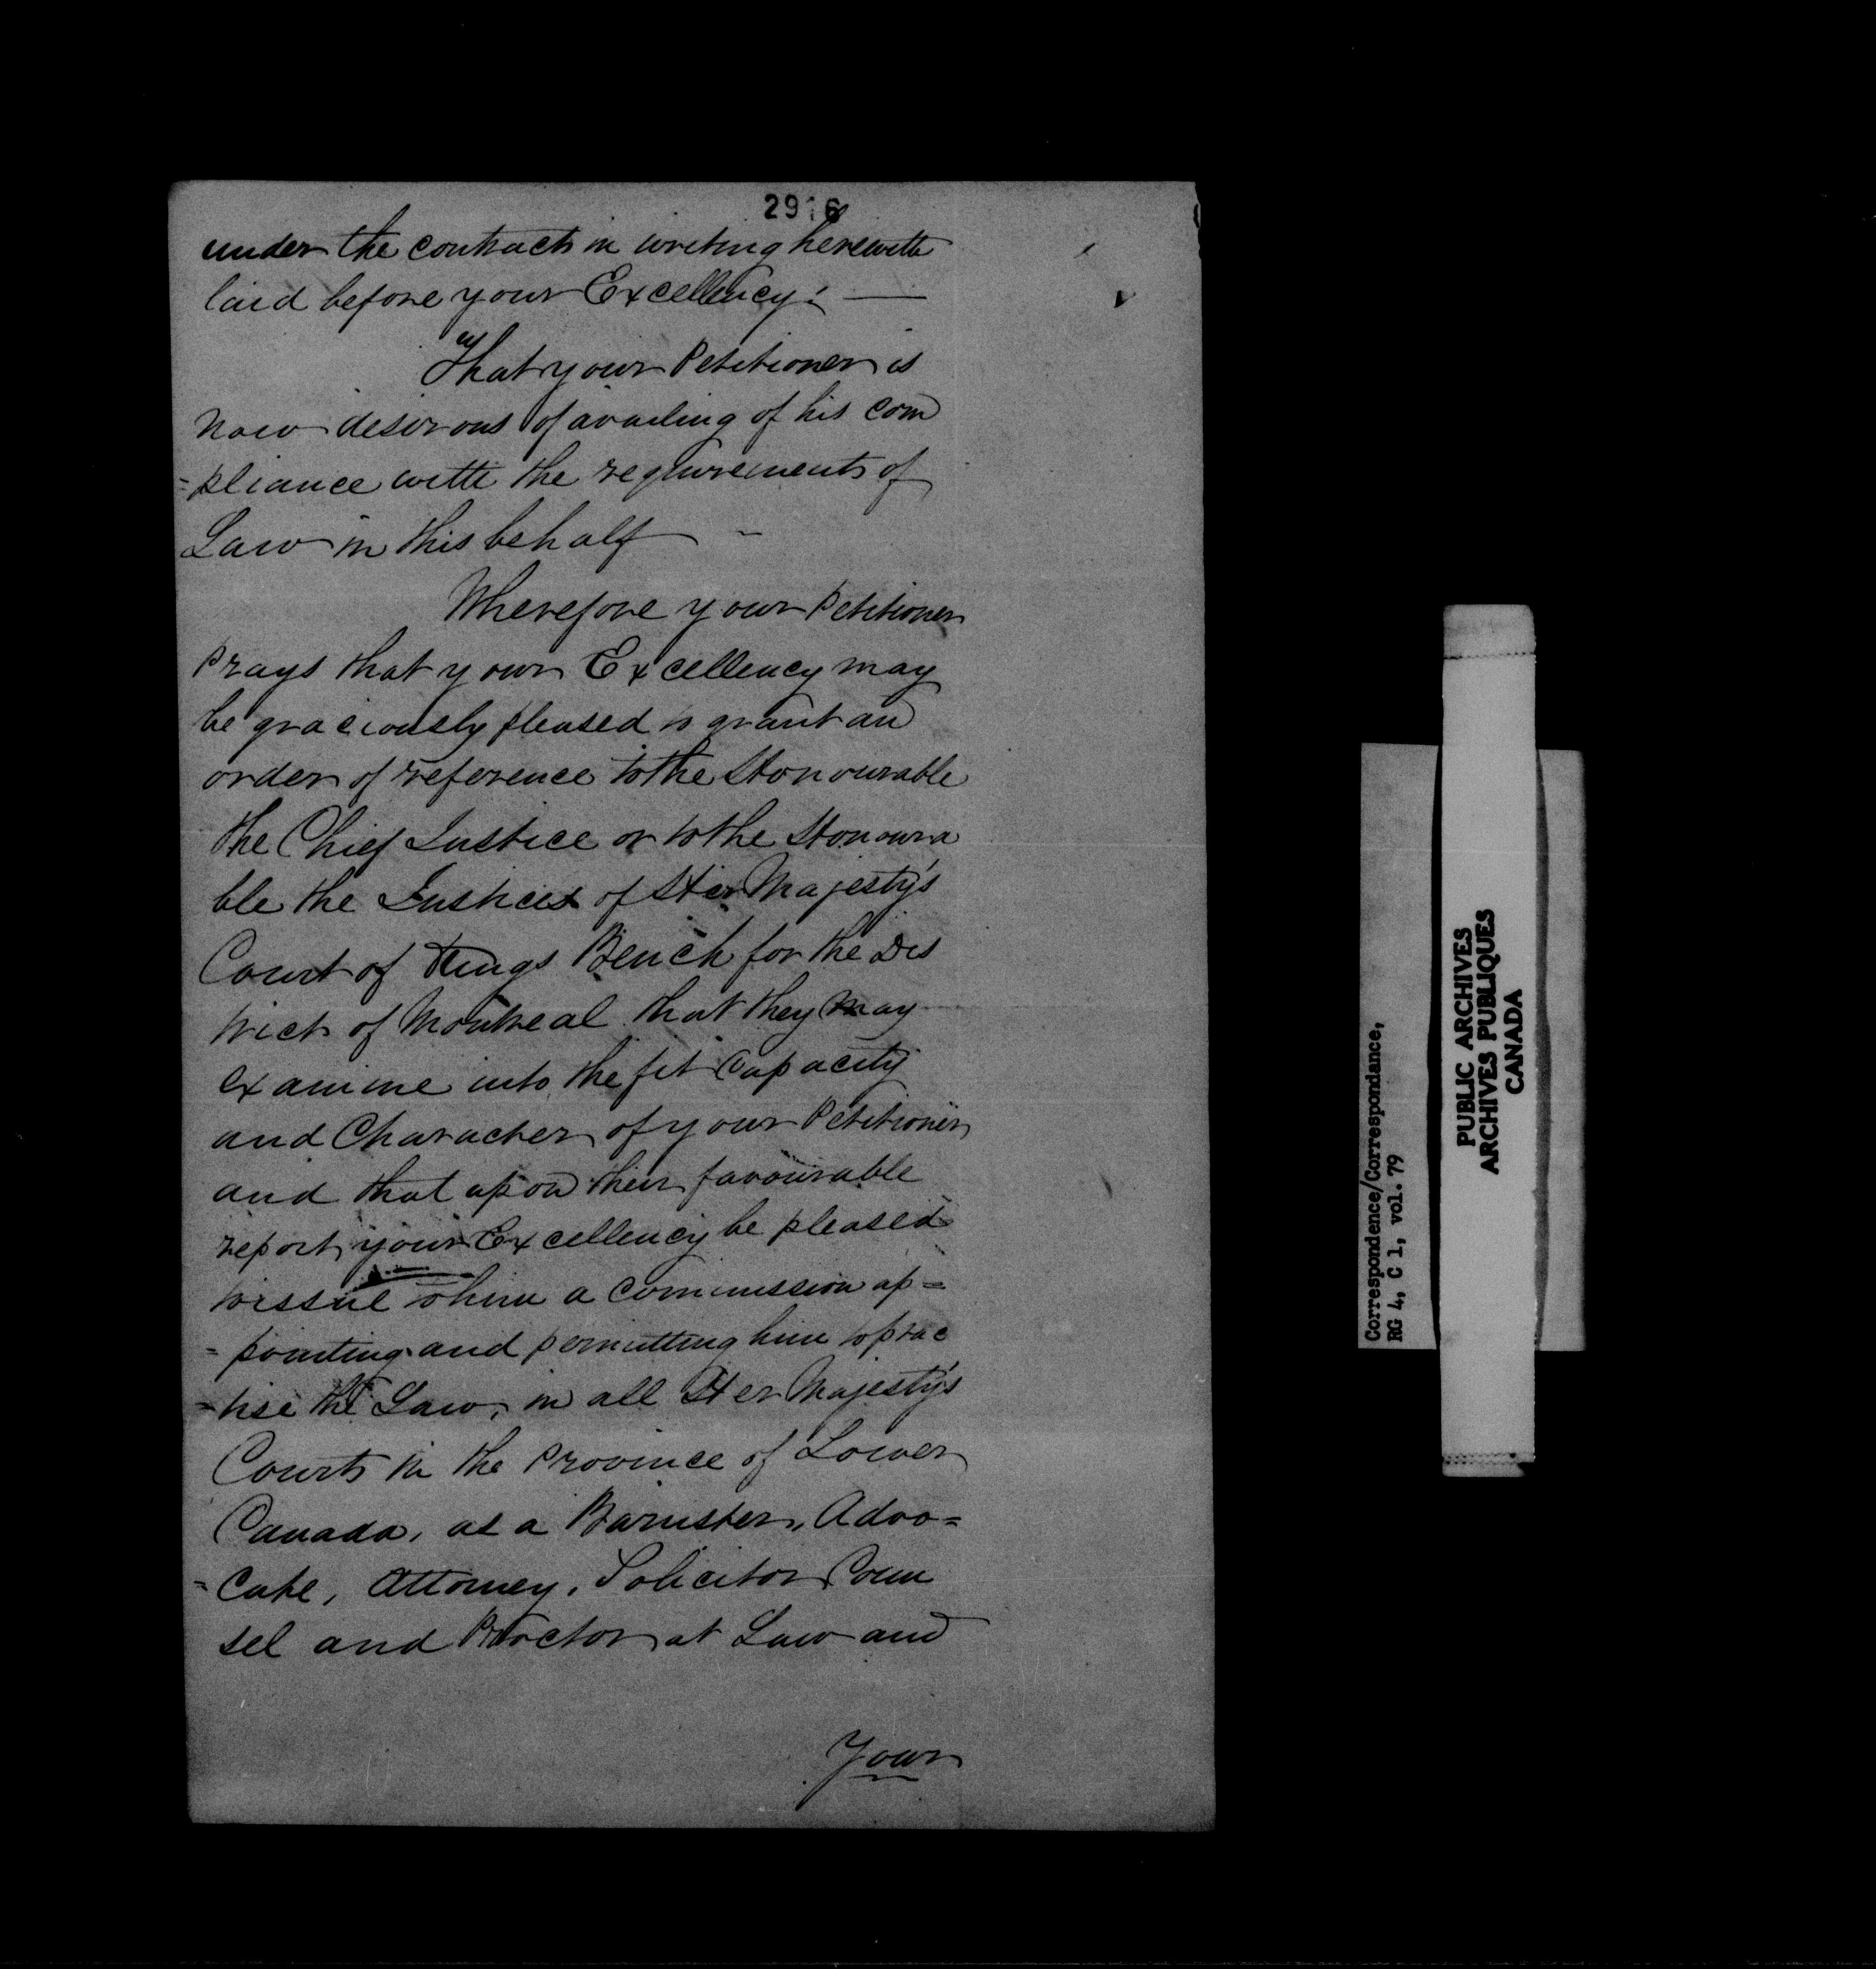 2916
under the contracts in writing herewith
laid before your Excellency: —
That your Petitioner is
now desirous of availing of his com
=pliance with the requirements of
Law in this behalf -
Wherefore your Petitioner
prays that your Excellency may
be graciously pleased to grant an
order of reference to the Honourable
the Chief Justice or to the Honoura
ble the Justices of Her Majesty's
Court of Kings Bench for the Dis
trict of Montreal that they may
examine into the fit capacity
and Character of your Petitioner
and that upon their favourable
report, your Excellency be pleased
to issue to him a commission ap=
=pointing and permitting him to prac
=tise the Law, in all Her Majesty's
Courts in the Province of Lower
Canada, as a Barrister, Advo=
=cate, Attorney, Solicitor Coun
sel and Proctor at Law and
Your
Correspondence/Correspondance,
RG 4, C 1, vol. 79
PUBLIC ARCHIVES
ARCHIVES PUBLIQUES
CANADA